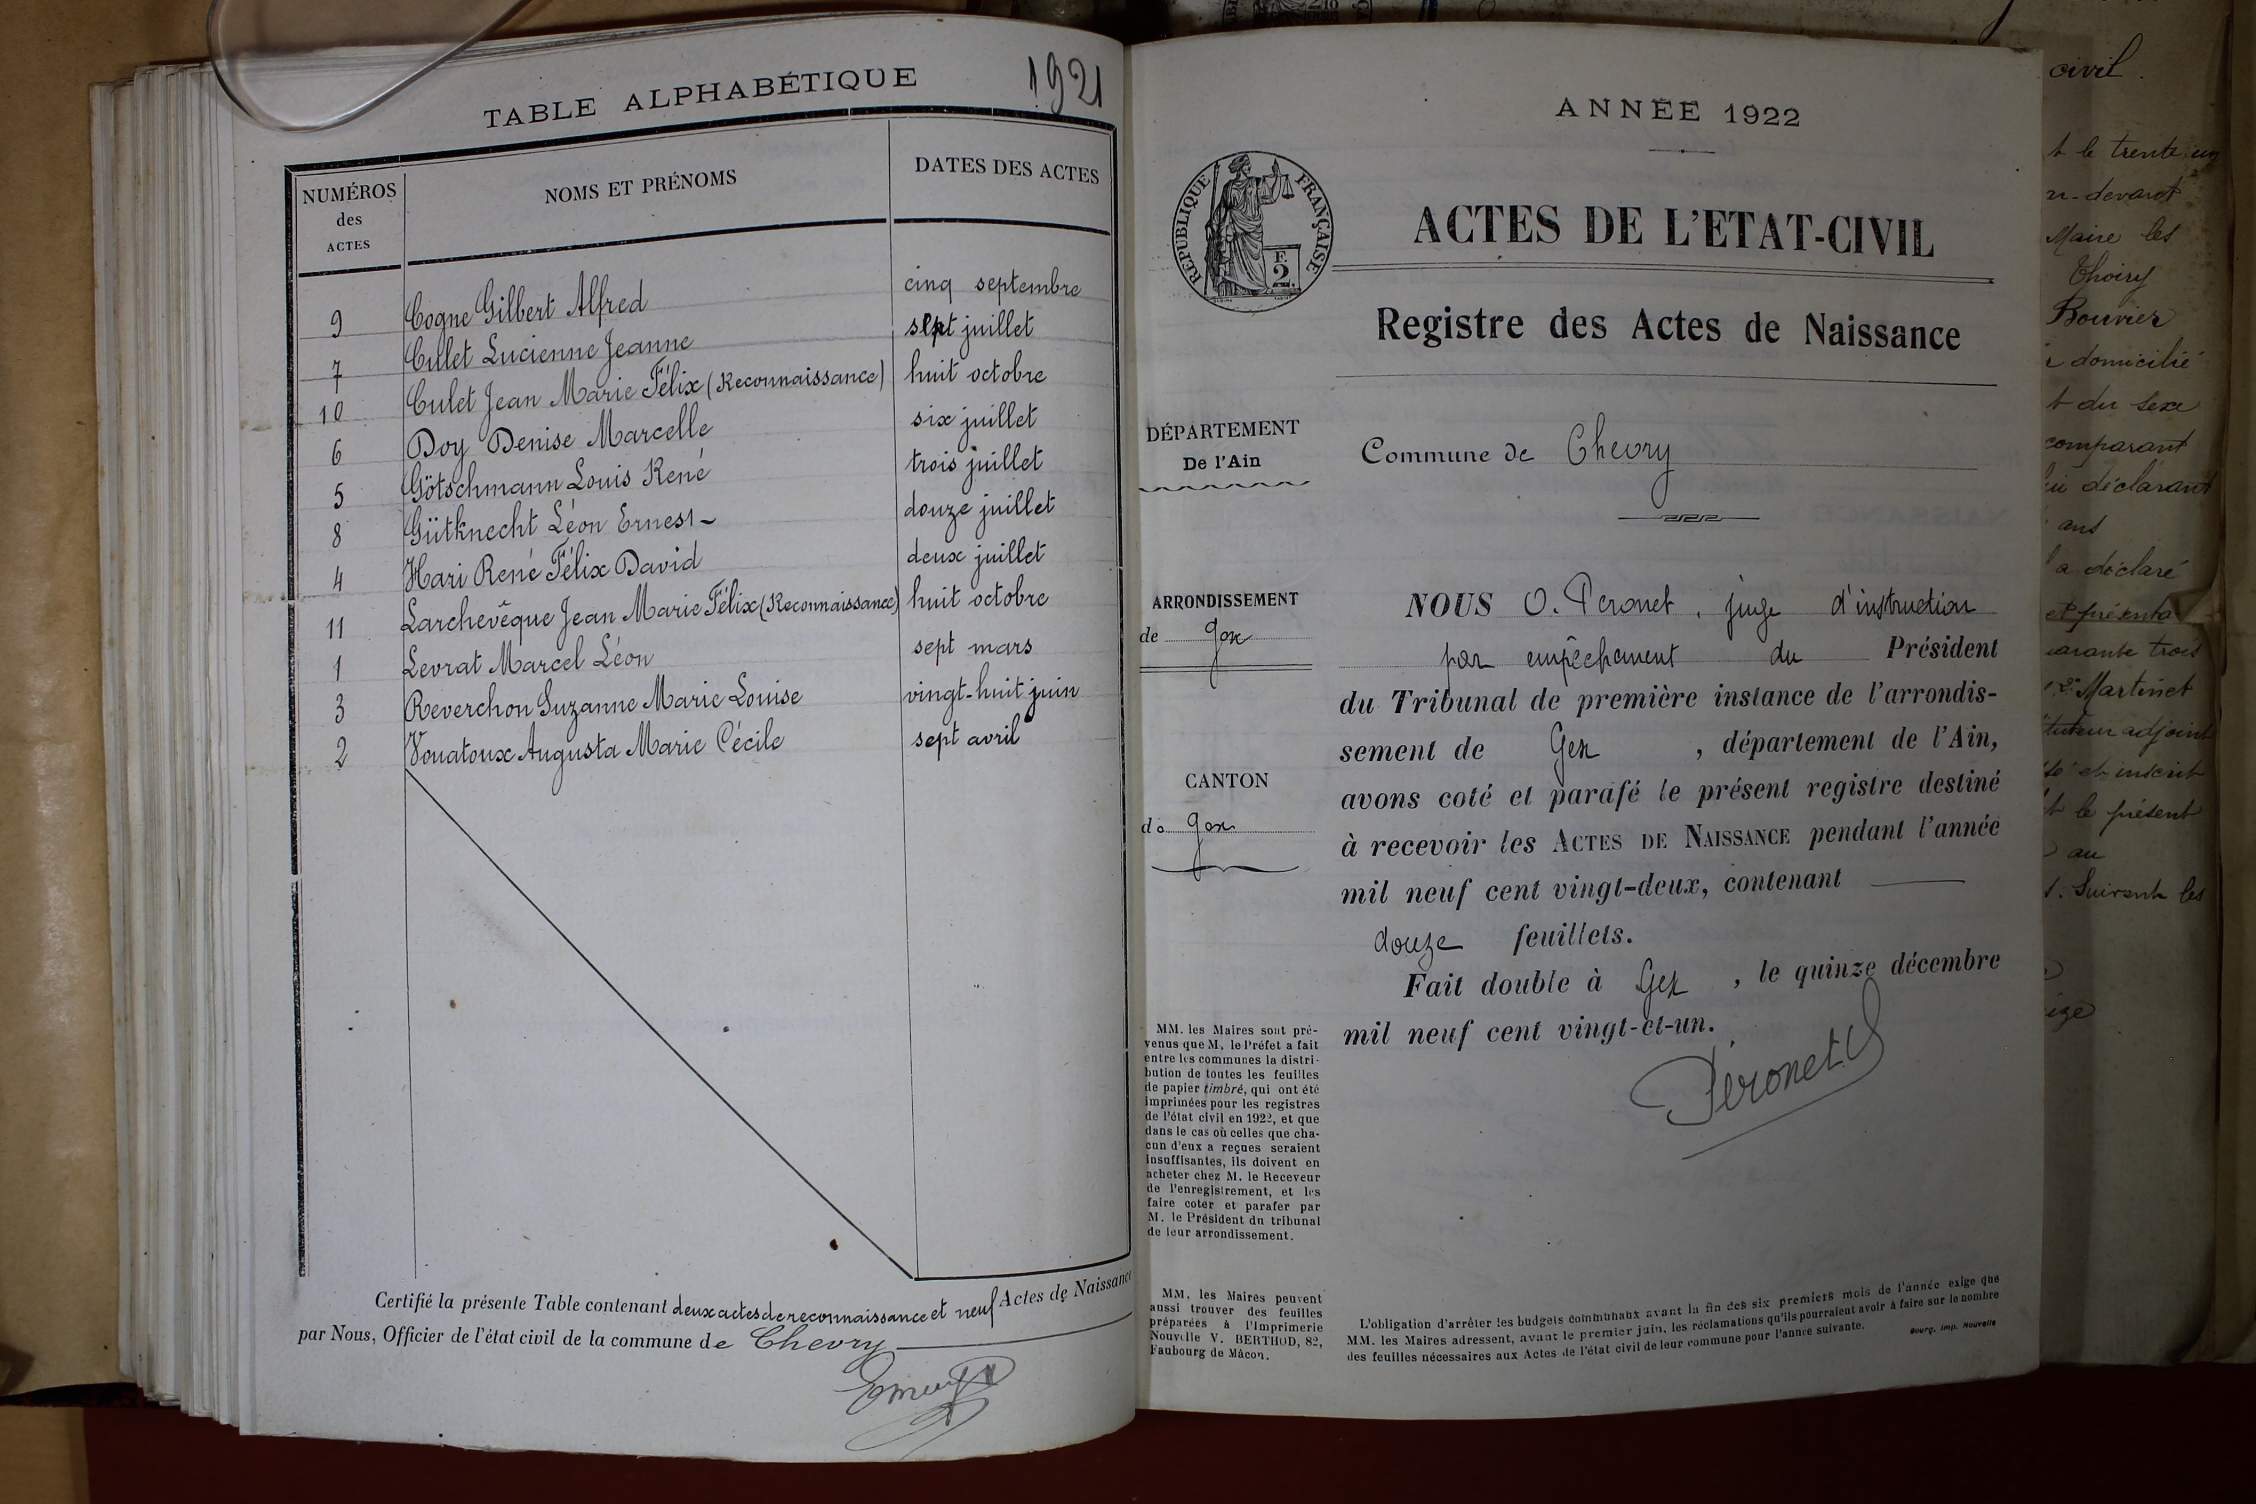 TABLE ALPHABÉTIQUE 1921
NUMÉROS des ACTES NOMS ET PRÉNOMS DATES DES ACTES
9 Cogne Gilbert Alfred cinq septembre
7 Culet Lucienne Jeanne sept juillet
10 Culet Jean Marie Félix (Reconnaissance) huit octobre
6 Doy Denise Marcelle six juillet
5 Götschmann Louis René trois juillet
8 Gütknecht Léon Ernest douze juillet
4 Hari René Félix David deux juillet
11 Larchevêque Jean Marie Félix (Reconnaissance) huit octobre
1 Levrat Marcel Léon sept mars
3 Reverchon Suzanne Marie Louise vingt-huit juin
2 Vouatoux Augusta Marie Cécile sept avril
Certifié la présente Table contenant deux actes de reconnaissance et neuf Actes de Naissance
par Nous, Officier de l'état civil de la commune de Chevry
ANNÉE 1922
RÉPUBLIQUE FRANÇAISE
F.
2.
ACTES DE L'ETAT-CIVIL
Registre des Actes de Naissance
DÉPARTEMENT
De l'Ain
Commune de Chevry
ARRONDISSEMENT
de Gex
CANTON
de Gex
NOUS O. Peronet, juge d'instruction
par empêchement du Président
du Tribunal de première instance de l'arrondis-
sement de Gex, département de l'Ain,
avons coté et parafé le présent registre destiné
à recevoir les ACTES DE NAISSANCE pendant l'année
mil neuf cent vingt-deux, contenant
douze feuillets.
Fait double à Gex, le quinze décembre
mil neuf cent vingt-et-un.
Péronet
MM. les Maires sont pré-
venus que M, le Préfet a fait
entre les communes la distri-
bution de toutes les feuilles
de papier timbré, qui ont été
imprimées pour les registres
de l'état civil en 1922, et que
dans le cas où celles que cha-
cun d'eux a reçues seraient
insuffisantes, ils doivent en
acheter chez M. le Receveur
de l'enregistrement, et les
faire coter et parafer par
M. le Président du tribunal
de leur arrondissement.
MM. les Maires peuvent
aussi trouver des feuilles
préparées à l'Imprimerie
Nouvelle V. BERTHOD, 82,
Faubourg de Mâcon.
L'obligation d'arrêter les budgets communaux avant la fin des six premiers mois de l'année exige que
MM. les Maires adressent, avant le premier juin, les réclamations qu'ils pourraient avoir à faire sur le nombre
des feuilles nécessaires aux Actes de l'état civil de leur commune pour l'année suivante.
Bourg, Imp. Nouvelle
civil.
t le trente un
devant
Maire les
Thoiry
Bouvier
domicilié
t du sexe
comparant
déclarant
ans
a déclaré
et présenté
trois
Martinet
adjoint
et inscrit
le présent
au
Suivant les